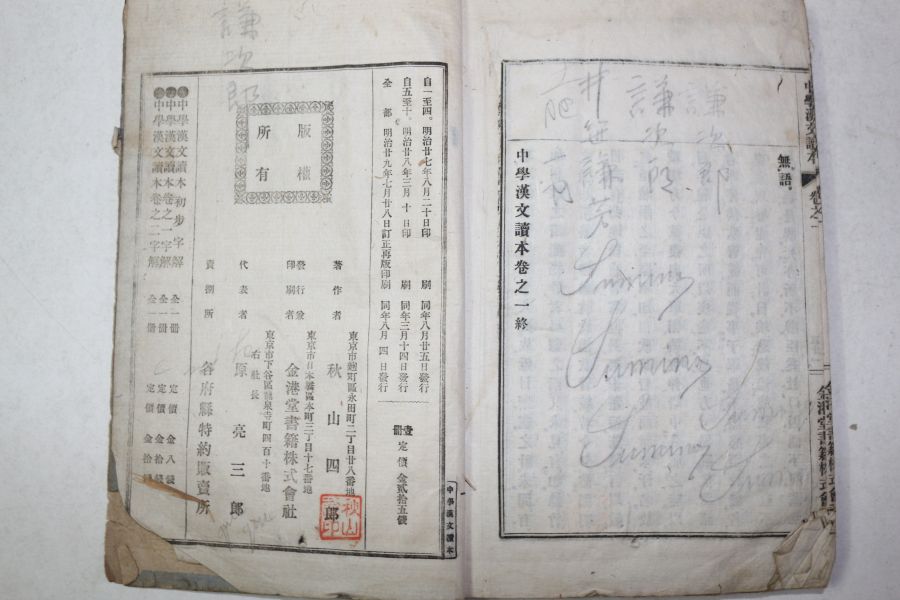 無語。
中學漢文讀本卷之一終
謙次郎
謙次郎
中學漢文讀本
金港堂書籍株式會
中學漢文讀本
自一至四。明治廿七年八月二十日印刷 同年八月廿五日發行
自五至十。明治廿八年三月十日印刷 同年三月十四日發行
全部 明治廿九年七月廿八日訂正再版印刷 同年八月四日發行
壹冊 定價金貳拾五錢
版權所有
著作者 東京市麴町區永田町二丁目廿八番地 秋山四郎
秋山
發行兼印刷者 東京市日本橋區本町三丁目十七番地 金港堂書籍株式會社
代表者 東京市下谷區龍泉寺町四百十番地 右社長 原亮三郎
賣捌所 各府縣特約販賣所
中學漢文讀本初步字解 全一冊 定價 金八錢
中學漢文讀本卷之一字解 全一冊 定價 金拾錢
中學漢文讀本卷之二字解 全一冊 定價 金拾錢
謙次郎